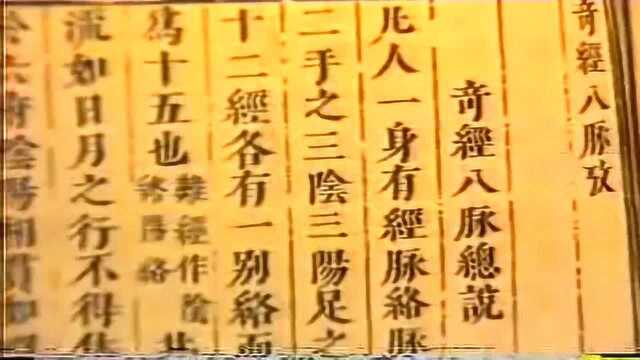 竒經八脉攷
竒經八脉總說
凡人一身有經脉絡脉
二手之三陰三陽足之
十二經各有一别絡而
爲十五也難經作陰
流如日月之行不得休
陰陽相貫如